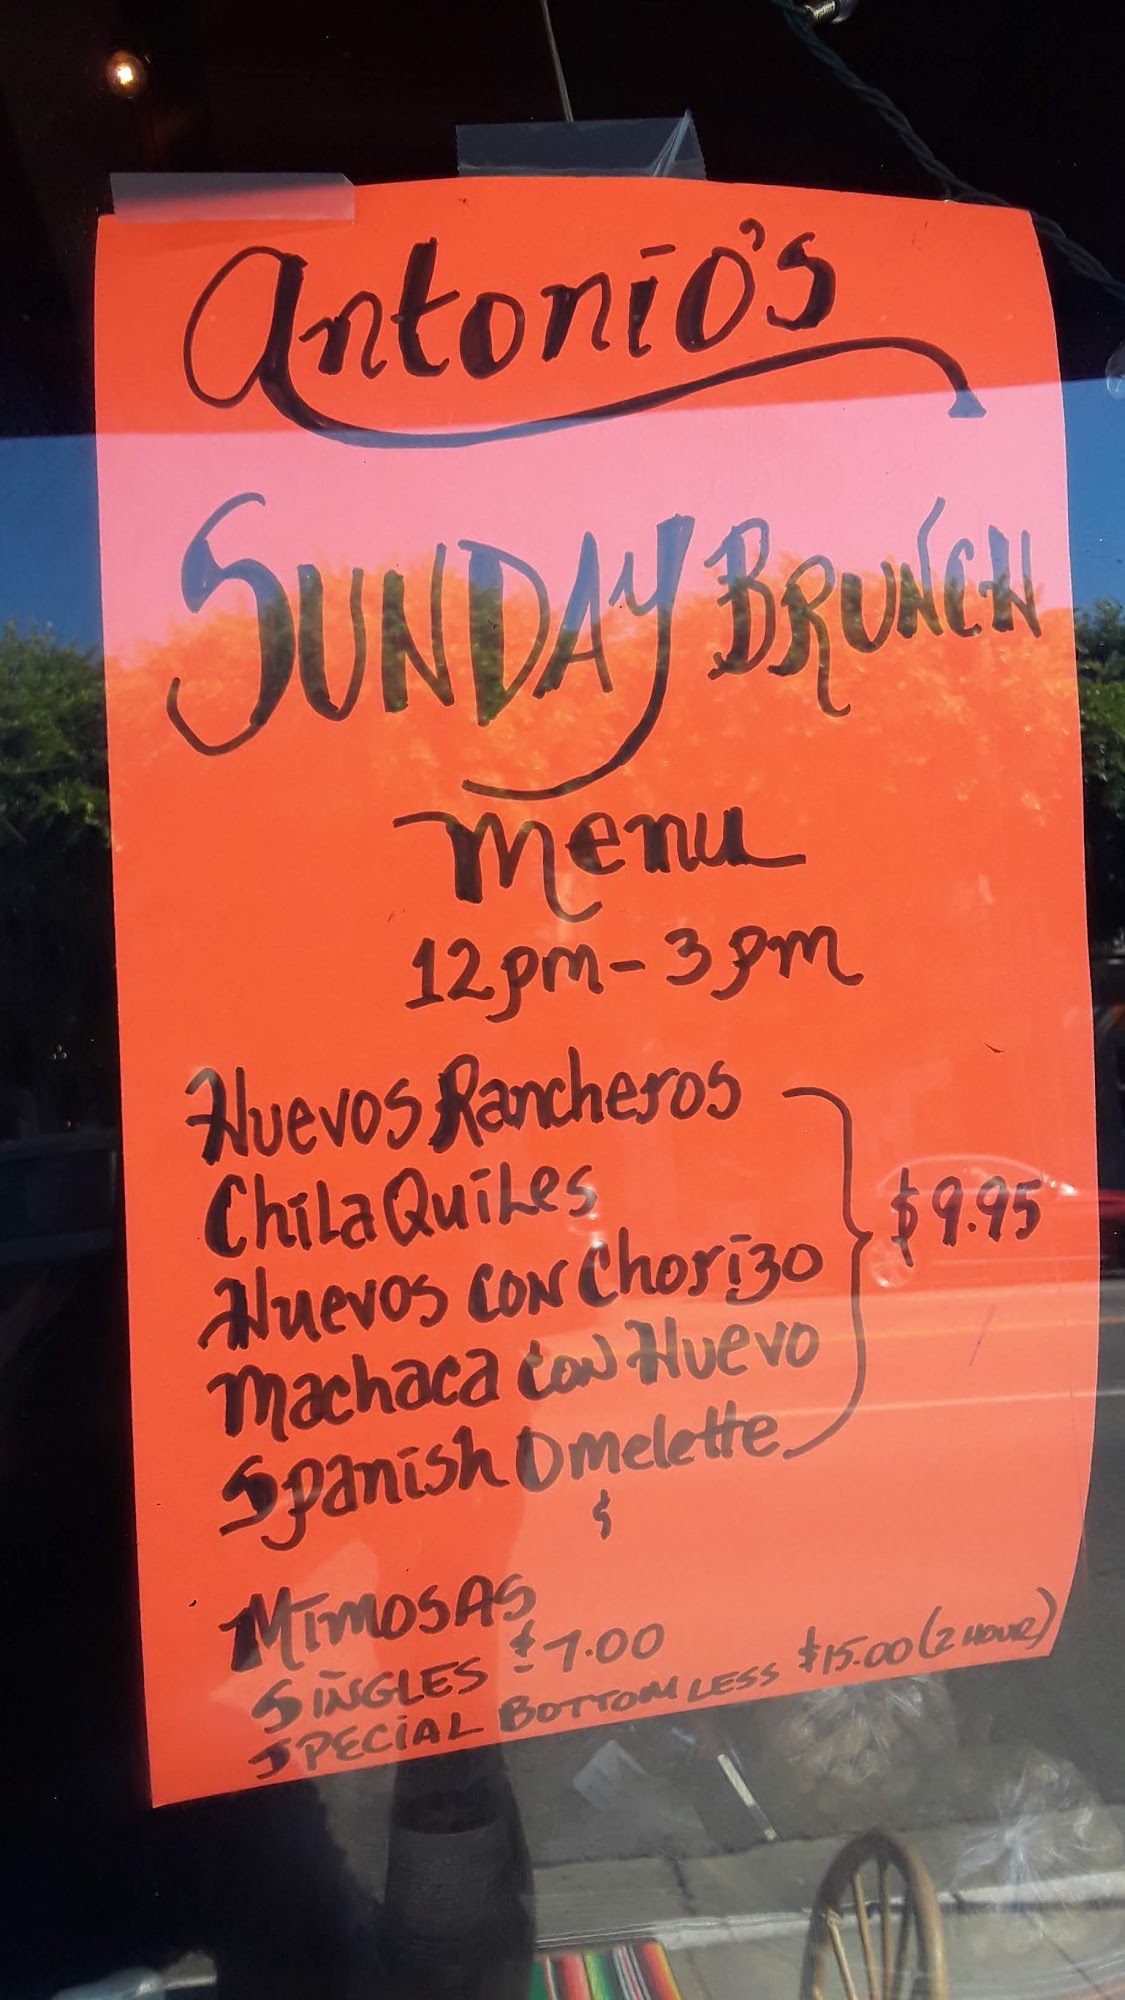 Antonio's
SUNDAY BRUNCH
Menu
12pm-3pm
Huevos Rancheros
ChilaQuiles
Huevos con Chorizo
Machaca con Huevo
Spanish Omelette
$9.95
&
Mimosas
SINGLES $7.00
SPECIAL BOTTOMLESS $15.00 (2 HOUR)